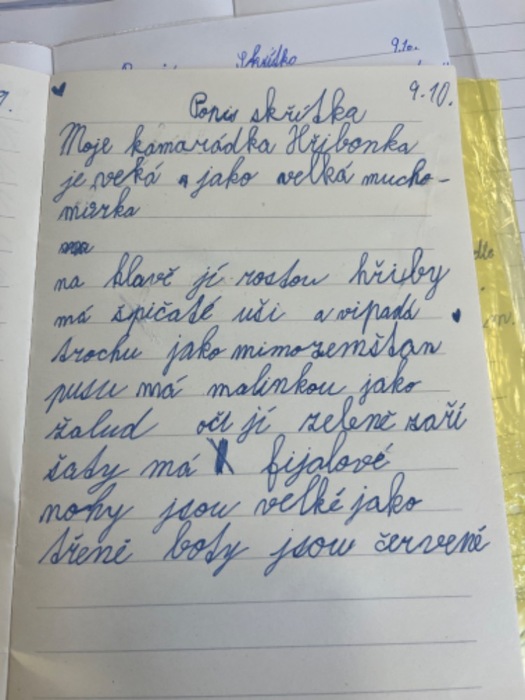 Skřítko 9.10.
9.10.
Popis skřítka
Moje kamarádka Hřibonka
je veká jako velká mucho-
můrka
na hlavě jí rostou hřiby
má špičaté uši a vipadá
trochu jako mimozemštan
pusu má malinkou jako
žalud oči jí zeleně září
šaty má fijalové
nohy jsou velké jako
třeně boty jsou červené